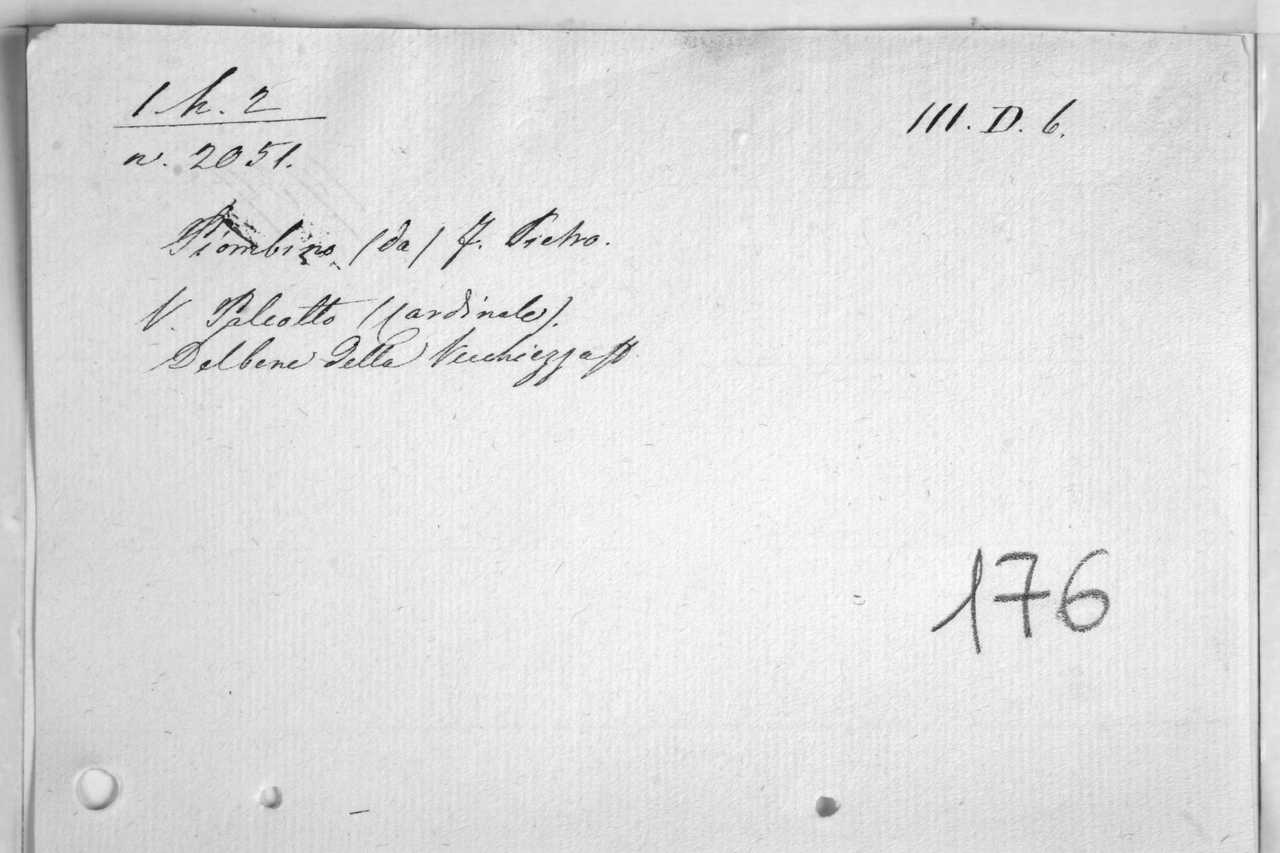 1. h. 2
n. 2051.
III. D. 6.
Piombino (da) F. Pietro.
V. Paleotto (Cardinale).
Del bene della Vecchiezza
176